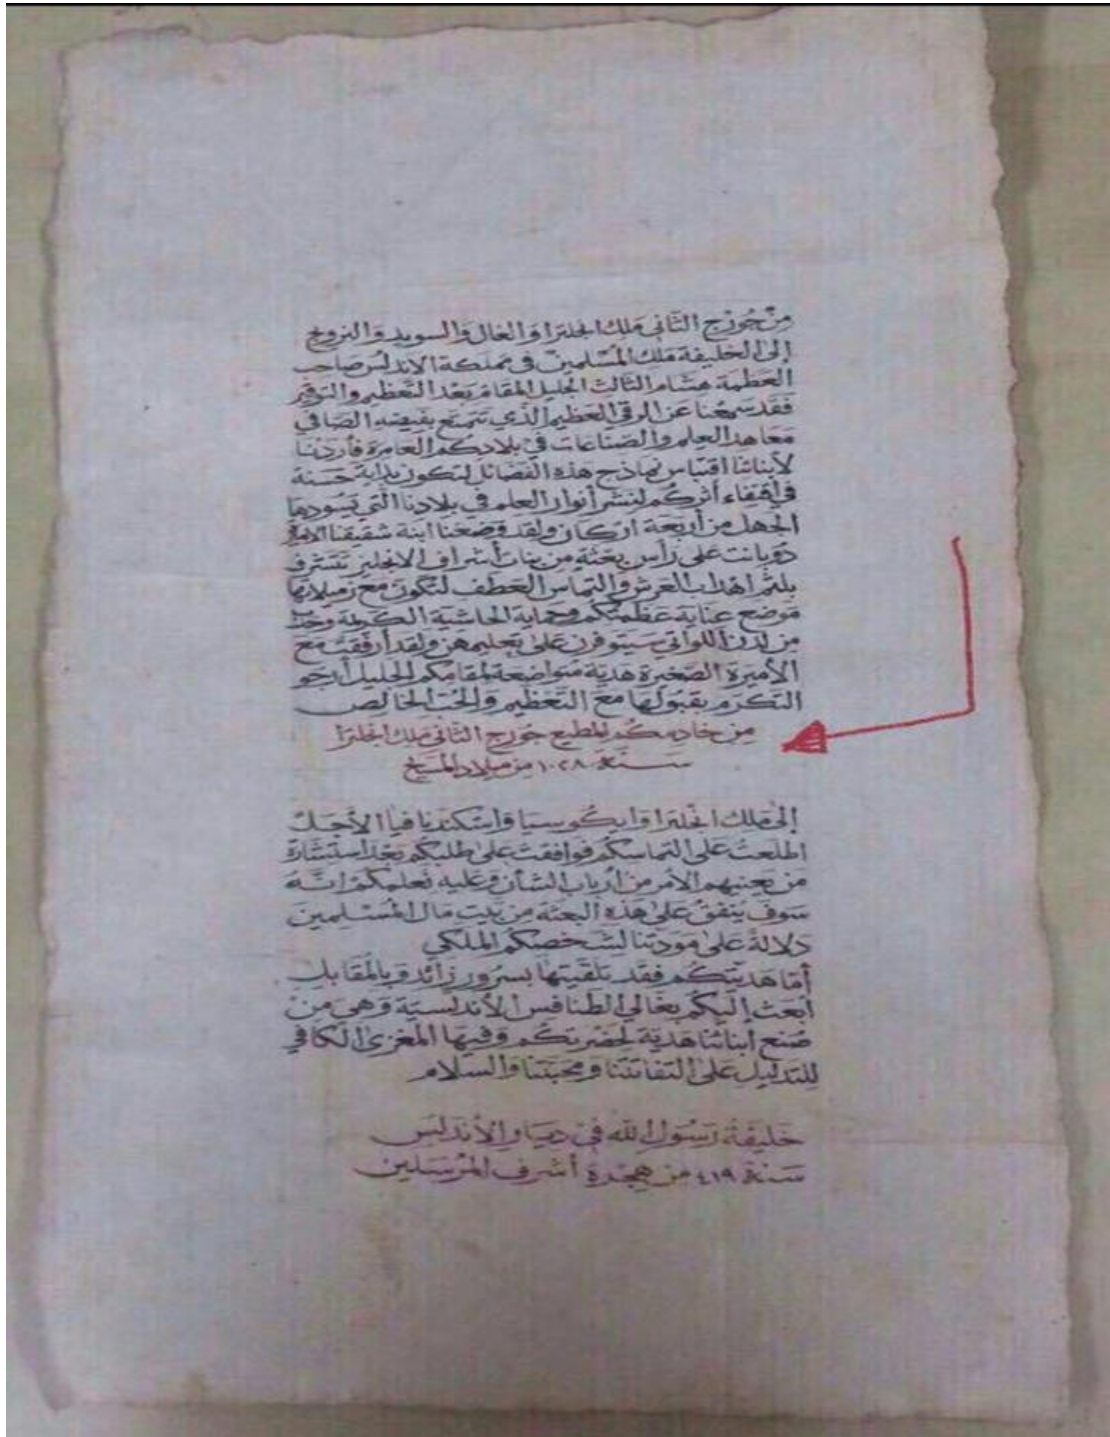 من جورج الثاني ملك انجلترا والغال والسويد والنرويج
إلى الخليفة ملك المسلمين في مملكة الاندلس صاحب
العظمة هشام الثالث الجليل المقام بعد التعظيم والتوقير
فقد سمعنا عن الرقي العظيم الذي تتمتع بفيضه الصافي
معاهد العلم والصناعات في بلادكم العامرة فأردنا
لأبنائنا اقتباس نماذج هذه الفضائل لتكون بداية حسنة
في اقتفاء أثركم لنشر أنوار العلم في بلادنا التي يسودها
الجهل من أربعة اركان ولقد وضعنا ابنة شقيقنا
دوبانت على رأس بعثة من بنات أشراف الانجليز تتشرف
بلثم اهداب العرش والتماس العطف لتكون مع زميلاتها
موضع عناية عظمتكم وحماية الحاشية الكريمة
من لدن اللواتي سيتوفرن على تعليمهن ولقد أرفقت مع
الأميرة الصغيرة هدية متواضعة لمقامكم الجليل أرجو
التكرم بقبولها مع التعظيم والحب الخالص
من خادمكم المطيع جورج الثاني ملك انجلترا
سنة ١٠٢٨ من ميلاد المسيح
إلى ملك انجلترا وايكوسيا واسكندنافيا الأجل
اطلعت على التماسكم فوافقت على طلبكم بعد استشارة
من يعنيهم الأمر من أرباب الشأن وعليه نعلمكم انه
سوف ينفق على هذه البعثة من بيت مال المسلمين
دلالة على مودتنا لشخصكم الملكي
أما هديتكم فقد تلقيتها بسرور زائد وبالمقابل
أبعث إليكم بغالي الطنافس الأندلسية وهي من
صنع أبنائنا هدية لحضرتكم وفيها المغزى الكافي
للتدليل على التفاتتنا ومحبتنا والسلام
خليفة رسول الله في ديار الأندلس
سنة ٤١٩ من هجرة أشرف المرسلين